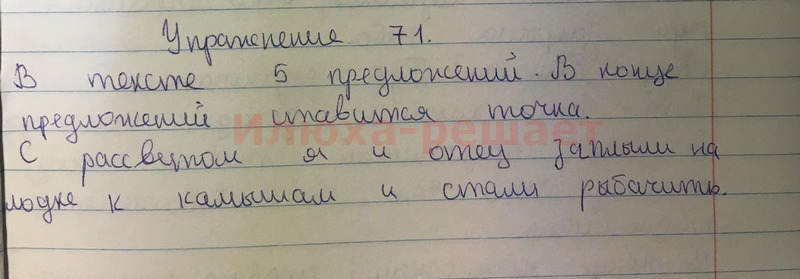 Упражнение 71.
В тексте 5 предложений. В конце
предложений ставится точка.
Илюха-решает
С рассветом я и отец заплыли на
лодке к камышам и стали рыбачить.